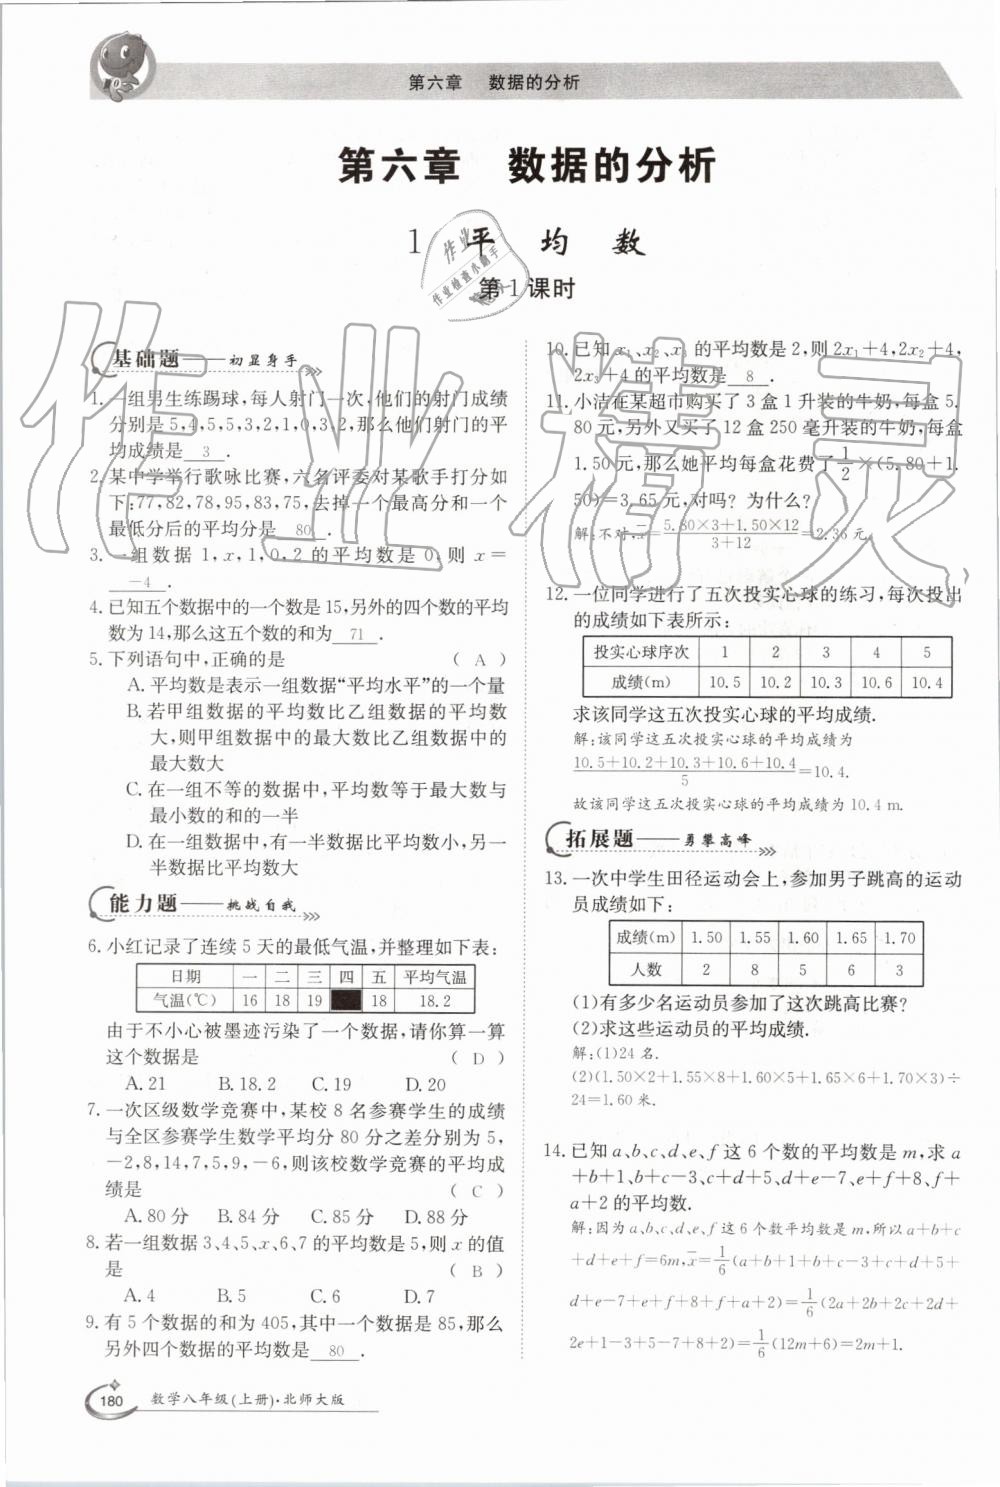 第六章 数据的分析
第六章 数据的分析
1 平均数
第1课时
基础题——初显身手
1. 一组男生练踢球,每人射门一次,他们的射门成绩
分别是5,4,5,5,3,2,1,0,3,2,那么他们射门的平
均成绩是 3 .
2. 某中学举行歌咏比赛,六名评委对某歌手打分如
下:77,82,78,95,83,75,去掉一个最高分和一个
最低分后的平均分是 80 .
3. 一组数据1,x,1,0,2的平均数是0,则x=
-4 .
4. 已知五个数据中的一个数是15,另外的四个数的平均
数为14,那么这五个数的和为 71 .
5. 下列语句中,正确的是 ( A )
A. 平均数是表示一组数据“平均水平”的一个量
B. 若甲组数据的平均数比乙组数据的平均数
大,则甲组数据中的最大数比乙组数据中的
最大数大
C. 在一组不等的数据中,平均数等于最大数与
最小数的和的一半
D. 在一组数据中,有一半数据比平均数小,另一
半数据比平均数大
能力题——挑战自我
6. 小红记录了连续5天的最低气温,并整理如下表:
日期 一 二 三 四 五 平均气温
气温(℃) 16 18 19 18 18.2
由于不小心被墨迹污染了一个数据,请你算一算
这个数据是 ( D )
A. 21 B. 18.2 C. 19 D. 20
7. 一次区级数学竞赛中,某校8名参赛学生的成绩
与全区参赛学生数学平均分80分之差分别为5,
-2,8,14,7,5,9,-6,则该校数学竞赛的平均成
绩是 ( C )
A. 80分 B. 84分 C. 85分 D. 88分
8. 若一组数据3、4、5、x、6、7的平均数是5,则x的值
是 ( B )
A. 4 B. 5 C. 6 D. 7
9. 有5个数据的和为405,其中一个数据是85,那么
另外四个数据的平均数是 80 .
10. 已知x₁、x₂、x₃的平均数是2,则2x₁+4,2x₂+4,
2x₃+4的平均数是 8 .
11. 小洁在某超市购买了3盒1升装的牛奶,每盒5.
80元,另外又买了12盒250毫升装的牛奶,每盒
1.50元,那么她平均每盒花费了1/2×(5.80+1.
50)=3.65元,对吗?为什么?
解:不对,x̄=(5.80×3+1.50×12)/(3+12)=2.36元.
12. 一位同学进行了五次投实心球的练习,每次投出
的成绩如下表所示:
投实心球序次 1 2 3 4 5
成绩(m) 10.5 10.2 10.3 10.6 10.4
求该同学这五次投实心球的平均成绩.
解:该同学这五次投实心球的平均成绩为
(10.5+10.2+10.3+10.6+10.4)/5=10.4.
故该同学这五次投实心球的平均成绩为10.4 m.
拓展题——勇攀高峰
13. 一次中学生田径运动会上,参加男子跳高的运动
员成绩如下:
成绩(m) 1.50 1.55 1.60 1.65 1.70
人数 2 8 5 6 3
(1)有多少名运动员参加了这次跳高比赛?
(2)求这些运动员的平均成绩.
解:(1)24名.
(2)(1.50×2+1.55×8+1.60×5+1.65×6+1.70×3)÷
24=1.60米.
14. 已知a、b、c、d、e、f这6个数的平均数是m,求a
+b+1、b+c-3、c+d+5、d+e-7、e+f+8、f+
a+2的平均数.
解:因为a、b、c、d、e、f这6个数平均数是m,所以a+b+c
+d+e+f=6m,x̄=1/6(a+b+1+b+c-3+c+d+5+
d+e-7+e+f+8+f+a+2)=1/6(2a+2b+2c+2d+
2e+1-3+5-7+8+2)=1/6(12m+6)=2m+1.
180 数学八年级(上册)·北师大版
作业精灵
作业
作业检查小帮手